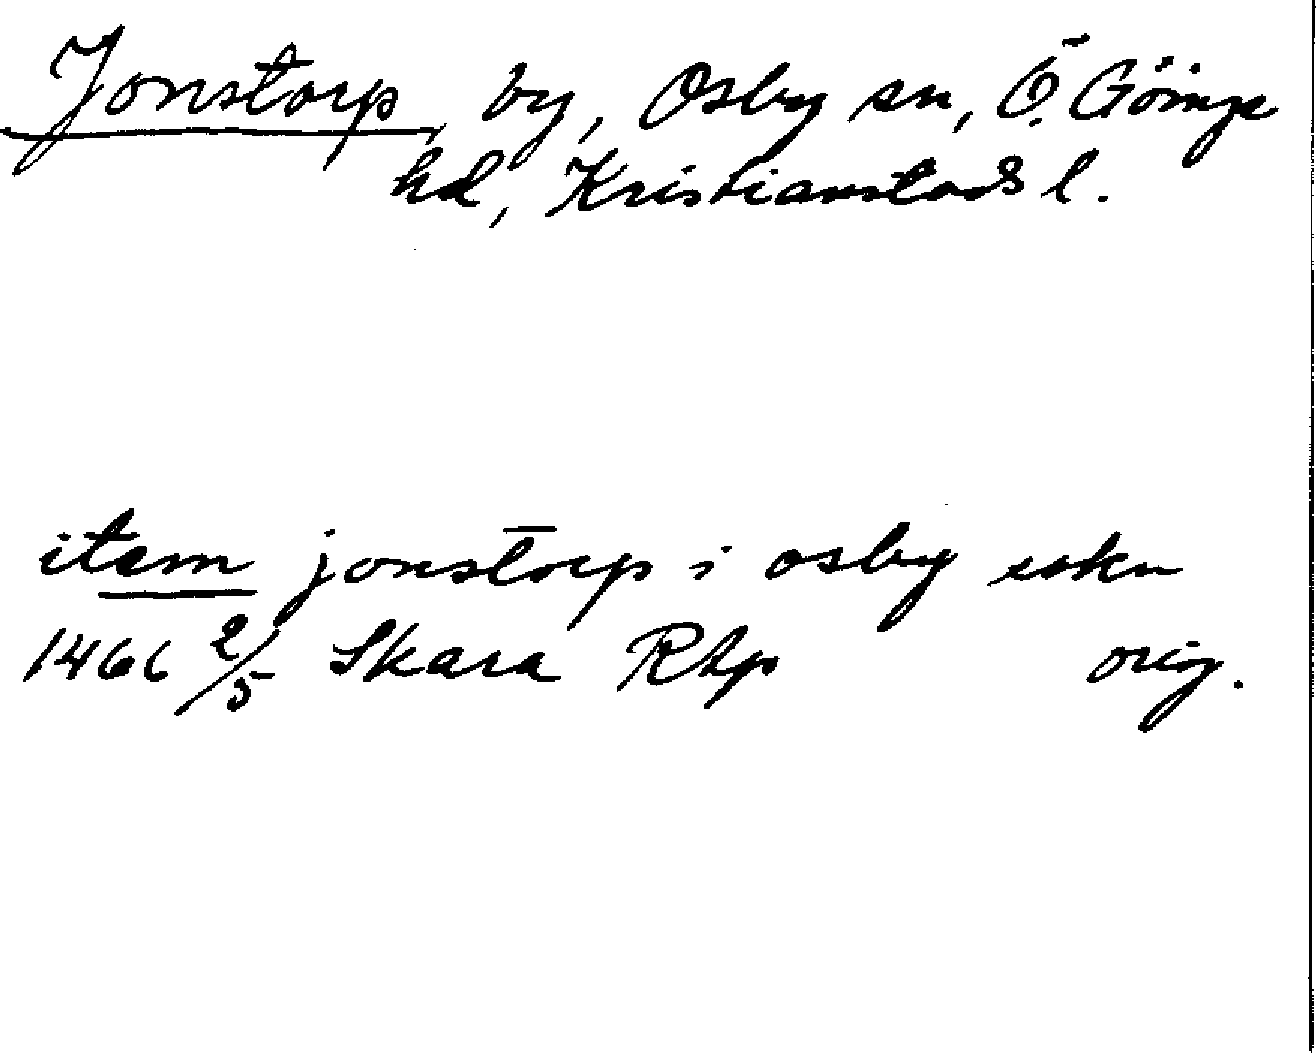 Jonstorp, by, Osby sn, Ö. Göinge
hd, Kristianstads l.
item jonstorp i osby sokn
1466 2/5 Skara RAp orig.